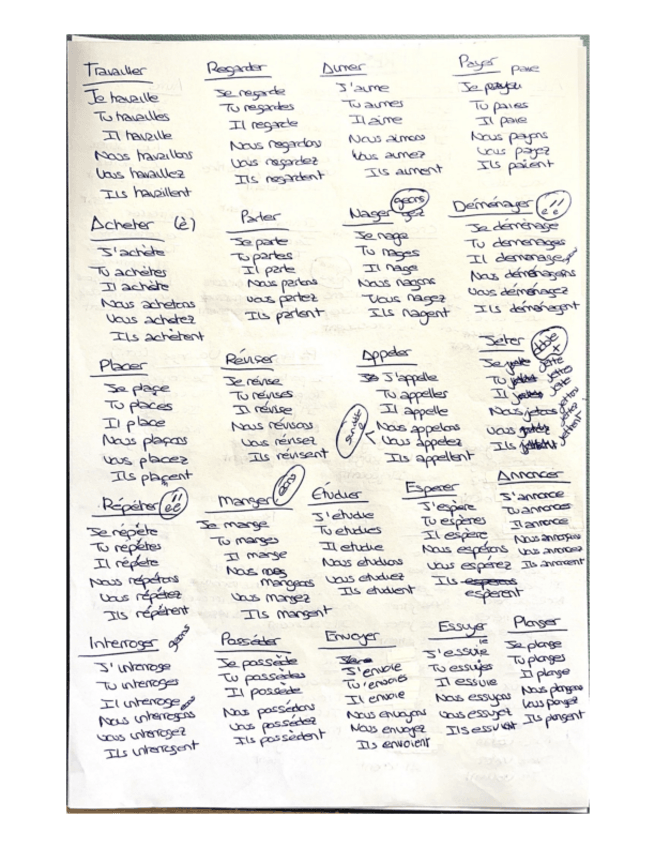 Travailler
Je travaille
Tu travailles
Il travaille
Nous travaillons
Vous travaillez
Ils travaillent
Regarder
Je regarde
Tu regardes
Il regarde
Nous regardons
Vous regardez
Ils regardent
Aimer
J'aime
Tu aimes
Il aime
Nous aimons
Vous aimez
Ils aiment
Payer paie
Je
Tu paies
Il paie
Nous payons
Vous payez
Ils paient
Acheter (è)
J'achète
Tu achètes
Il achète
Nous achetons
Vous achetez
Ils achètent
Parler
Je parle
Tu parles
Il parle
Nous parlons
Vous parlez
Ils parlent
Nager geons
Je nage
Tu nages
Il nage
Nous nagons
Vous nagez
Ils nagent
Déménager
Je déménage
Tu demenages
Il demenage
Nous déménagons
Vous déménagez
Ils déménagent
Placer
Je place
Tu places
Il place
Nous plaçons
Vous placez
Ils plaçent
Réviser
Je révise
Tu révises
Il révise
Nous révisons
Vous révisez
Ils révisent
Appeler
J'appelle
Tu appelles
Il appelle
Nous appelons
Vous appelez
Ils appellent
Jeter
Je jette
Tu jettes
Il jette
Nous jetons
Vous jetez
Ils jettent
Répéter
Je répète
Tu répètes
Il répète
Nous répétons
Vous répétez
Ils répètent
Manger eons
Je mange
Tu manges
Il mange
Nous
mangeons
Vous mangez
Ils mangent
Étudier
J'étudie
Tu etudies
Il etudie
Nous etudions
Vous etudiez
Ils etudient
Esperer
J'espère
Tu espères
Il espère
Nous espérons
Vous espérez
Ils
esperent
Annoncer
J'annonce
Tu annonces
Il annonce
Nous annonçons
Vous annoncez
Ils annoncent
Interroger geons
J'interroge
Tu interroges
Il interroge
Nous interrogons
Vous interrogez
Ils interrogent
Posséder
Je possède
Tu possèdes
Il possède
Nous possédons
Vous possédez
Ils possèdent
Envoyer
J'envoie
Tu envoies
Il envoie
Nous envoyons
Vous envoyez
Ils envoient
Essuyer
J'essuie
Tu essuies
Il essuie
Nous essuyons
Vous essuyez
Ils essuient
Plonger
Je plonge
Tu plonges
Il plonge
Nous plongons
Vous plongez
Ils plongent